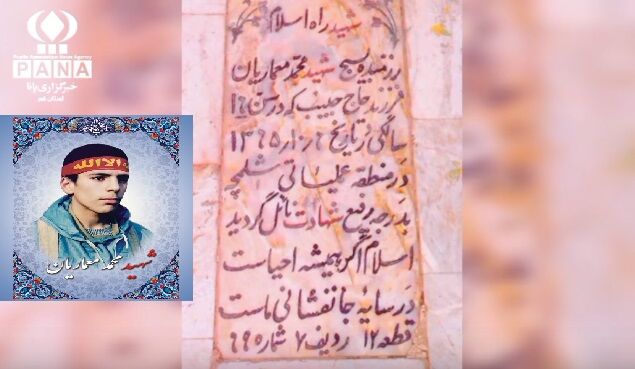 Pupils Association News Agency
PANA
خبرگزاری پانا
استان قم
لا اله الا الله
شهید محمد معماریان
شهید راه اسلام
رزمنده بسیج شهید محمد معماریان
فرزند حاج حبیب که در سن ۱۶
سالگی در تاریخ
در منطقه عملیاتی شلمچه
بدرجه رفیع شهادت نائل گردید
اسلام اگر همیشه احیاست
در سایه جانفشانی ماست
قطعه ۱۲ ردیف ۷ شماره ۶۹